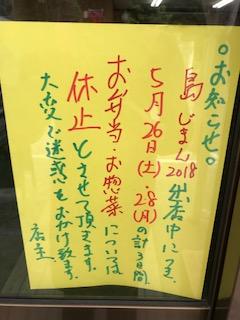 。お知らせ。
島じまん2018出店中につき、
5月26日(土)・28(月)の計3日間、
お弁当・お惣菜については
休止とさせて頂きます。
大変ご迷惑をおかけ致します。
店主